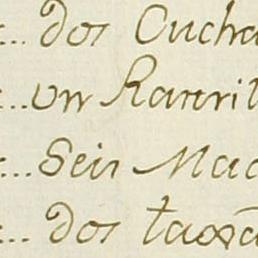 dos Cucha
un Ramil
Seis Mac
dos taxa